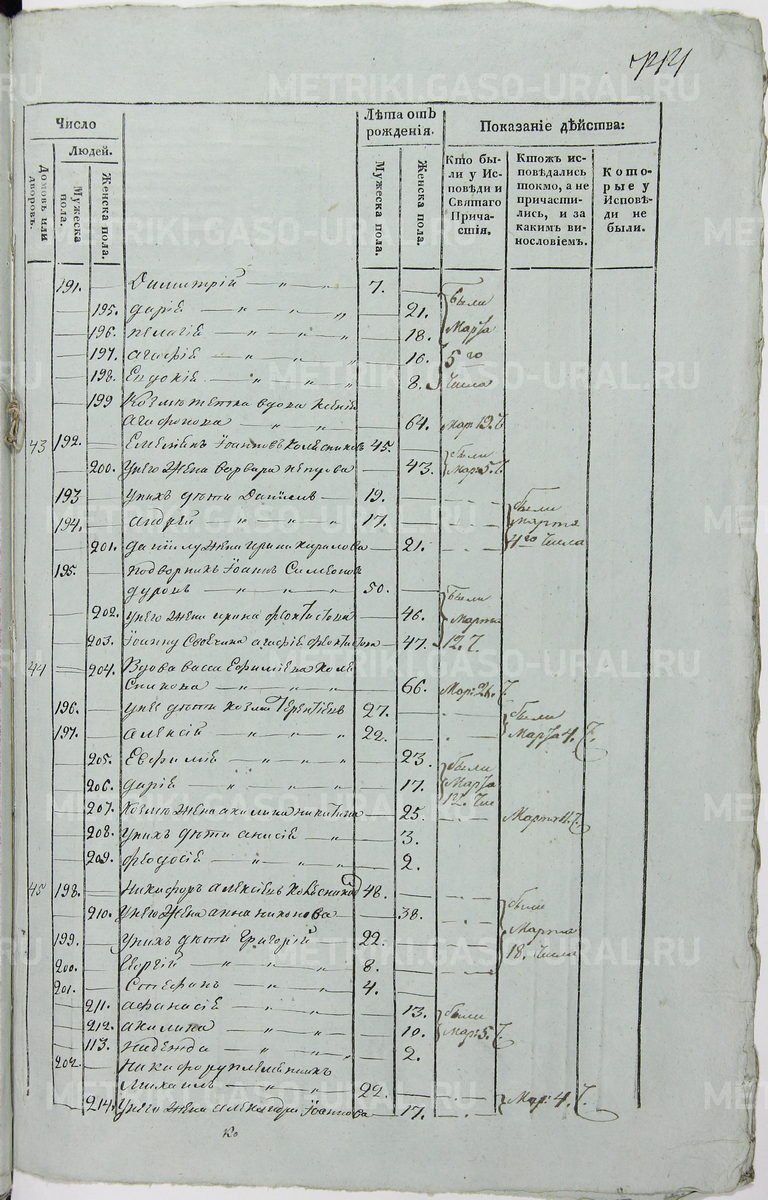 Число
Людей.
Домовъ или дворовъ.
Мужеска пола.
Женска пола.
Лѣта отъ рожденія.
Мужеска пола.
Женска пола.
Показаніе дѣйства:
Кто были у Исповѣди и Святаго Причастія.
Ктожъ исповѣдались токмо, а не причастились, и за какимъ винословіемъ.
Которые у Исповѣди не были.
191. Димитрій — „ — 7.
195. дарія — „ — „ 21. были
196. пелагія — „ — „ 18. Марта
197. агафія — „ — „ 16. 5го
198. Евдокія — „ — „ 8. Числа
199 Козмы тетка вдова
Агафонова — „ — 64. Мар: 19. Ч
43 192. Емельянъ Іоанновъ Колесниковъ 45.
200. У него жена варвара 43. были Мар: 5. Ч.
193 У нихъ дѣти Даніилъ — 19. были
194. андрей — „ — „ 17. Марта
201. даніилу жена ирина кирилова — 21. 4го Числа
195. подворникъ Іоаннъ Симеоновъ
50.
202. у него жена ирина феоктистова — 46. были Марта
203. Іоанну агафія феоктистова — 47. 12. Ч.
44 204. Вдова васса Ефимиева Коле
сникова — „ — „ 66. Мар: 21. Ч.
196. у нее дѣти козма Терентіевъ 27. были
197. алексій — „ — „ 22. Марта 4. Ч.
205. Евфимія — „ — „ 23. были
206. дарія — „ — „ 17. Марта
12. Чис
207. Козмы жена акилина никитина — 25. Марта 11. Ч.
208. у нихъ дѣти анисія „ — 3.
209. феодосія — „ — „ 2.
45 198. Никифоръ алексіевъ Колесниковъ 48.
210. У него жена анна никонова — 38. были
Марта
199. У нихъ дѣти григорій 22. 18. Числа
200. Георгій — „ — „ 8.
201. Стефанъ — „ — „ 4.
211. афанасія — „ — „ 13. были
212. акилина — „ — „ 10. Мар: 5. Ч.
113. надежда — „ — „ 2.
202. Никифору племянникъ
Михаилъ — „ — „ 22.
214. У него жена александра Іоаннова — 17. Мар: 4. Ч.
Ко
METRIKI.GASO-URAL.RU